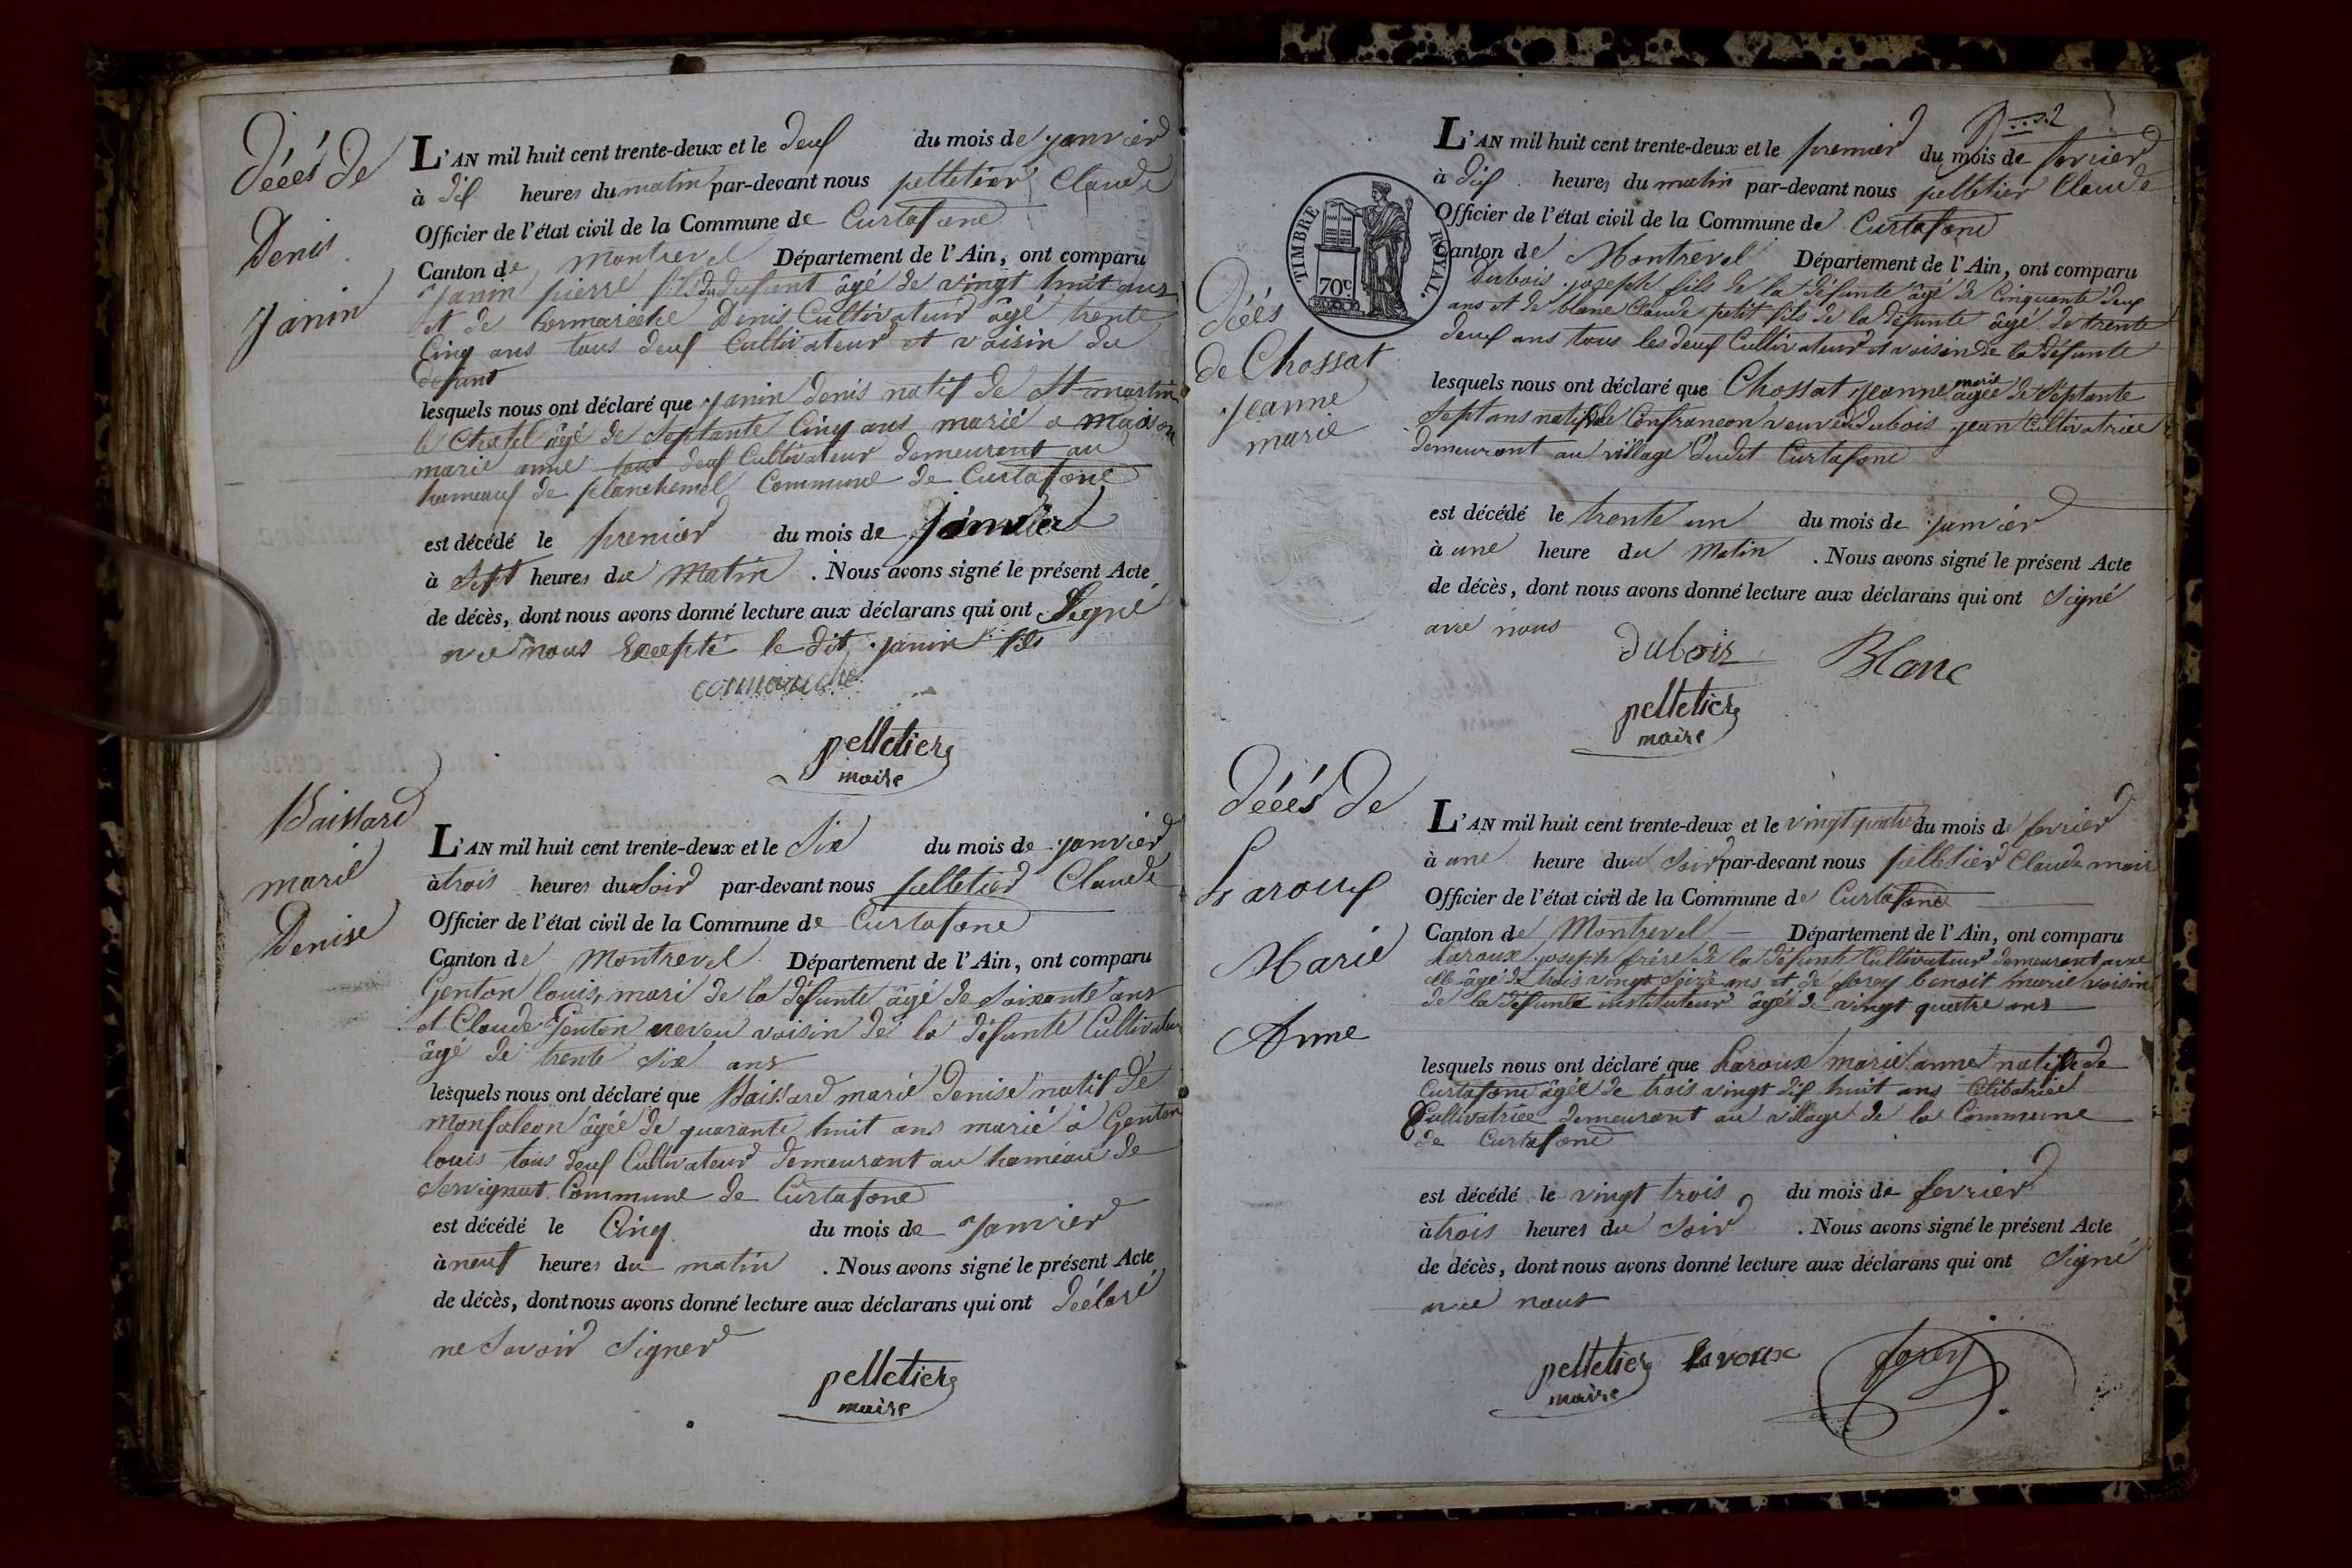 Décés de
Denis
Janin
L'AN mil huit cent trente-deux et le deux du mois de janvier
à dix heures du matin par-devant nous pelletier Claude
Officier de l'état civil de la Commune de Curtafond
Canton de Montrevel Département de l'Ain, ont comparu
Janin pierre fils du défunt âgé de vingt huit ans
et de Cormareche Denis Cultivateur âgé trente
Cinq ans tous deux Cultivateur et voisin du
défunt
lesquels nous ont déclaré que Janin denis natif de St martin
le Chatel âgé de Septante Cinq ans marié a
marie anne tous deux Cultivateur demeurant au
hameaux de planchemel Commune de Curtafond
est décédé le premier du mois de janvier
à Sept heures du Matin . Nous avons signé le présent Acte
de décès, dont nous avons donné lecture aux déclarans qui ont Signé
avec nous Excepté le dit janin fils
cormareche
pelletier
maire
Baissard
marie
Denise
L'AN mil huit cent trente-deux et le Six du mois de janvier
à trois heures du Soir par-devant nous pelletier Claude
Officier de l'état civil de la Commune de Curtafond
Canton de Montrevel Département de l'Ain, ont comparu
Genton louis, mari de la défunte âgé de Soixante ans
et Claude Genton neveu voisin de la défunte Cultivateur
âgé de trente Six ans
lesquels nous ont déclaré que Baissard marie Denise natif de
Monfalcon âgée de quarante huit ans marié à Genton
louis tous deux Cultivateur demeurant au hameau de
Servignat Commune de Curtafond
est décédé le Cinq du mois de Janvier
à neuf heures du matin . Nous avons signé le présent Acte
de décès, dont nous avons donné lecture aux déclarans qui ont déclaré
ne Savoir Signer
pelletier
maire
2
TIMBRE ROYAL.
70c
Décés
de Chossat
Jeanne
marie
L'AN mil huit cent trente-deux et le premier du mois de fevrier
à dix heures du matin par-devant nous pelletier Claude
Officier de l'état civil de la Commune de Curtafond
Canton de Montrevel Département de l'Ain, ont comparu
Dubois joseph fils de la défunte âgé de Cinquante deux
ans et de blanc Claude petit fils de la défunte âgé de trente
deux ans tous les deux Cultivateur et voisin de la défunte
lesquels nous ont déclaré que Chossat Jeanne marie agée de Septante
Sept ans natif de Confrançon veuve du Dubois jean Cultivatrice
demeurant au village dudit Curtafond
est décédé le trente un du mois de janvier
à une heure du Matin . Nous avons signé le présent Acte
de décès, dont nous avons donné lecture aux déclarans qui ont Signé
avec nous
dubois Blanc
pelletier
maire
Décés de
Laroux
Marie
Anne
L'AN mil huit cent trente-deux et le vingt quatre du mois de fevrier
à une heure du Soir par-devant nous pelletier Claude maire
Officier de l'état civil de la Commune de Curtafond
Canton de Montrevel Département de l'Ain, ont comparu
Laroux joseph frère de la défunte Cultivateur demeurant avec
elle âgé de trois vingt Seize ans et de forey benoit marie voisin
de la défunte instituteur âgé de vingt quatre ans
lesquels nous ont déclaré que Laroux marie anne natif de
Curtafond âgée de trois vingt dix huit ans Célibatrice
Cultivatrice demeurant au village de la Commune
de Curtafond
est décédé le vingt trois du mois de fevrier
à trois heures du Soir . Nous avons signé le présent Acte
de décès, dont nous avons donné lecture aux déclarans qui ont Signé
avec nous
pelletier laroux forey
maire